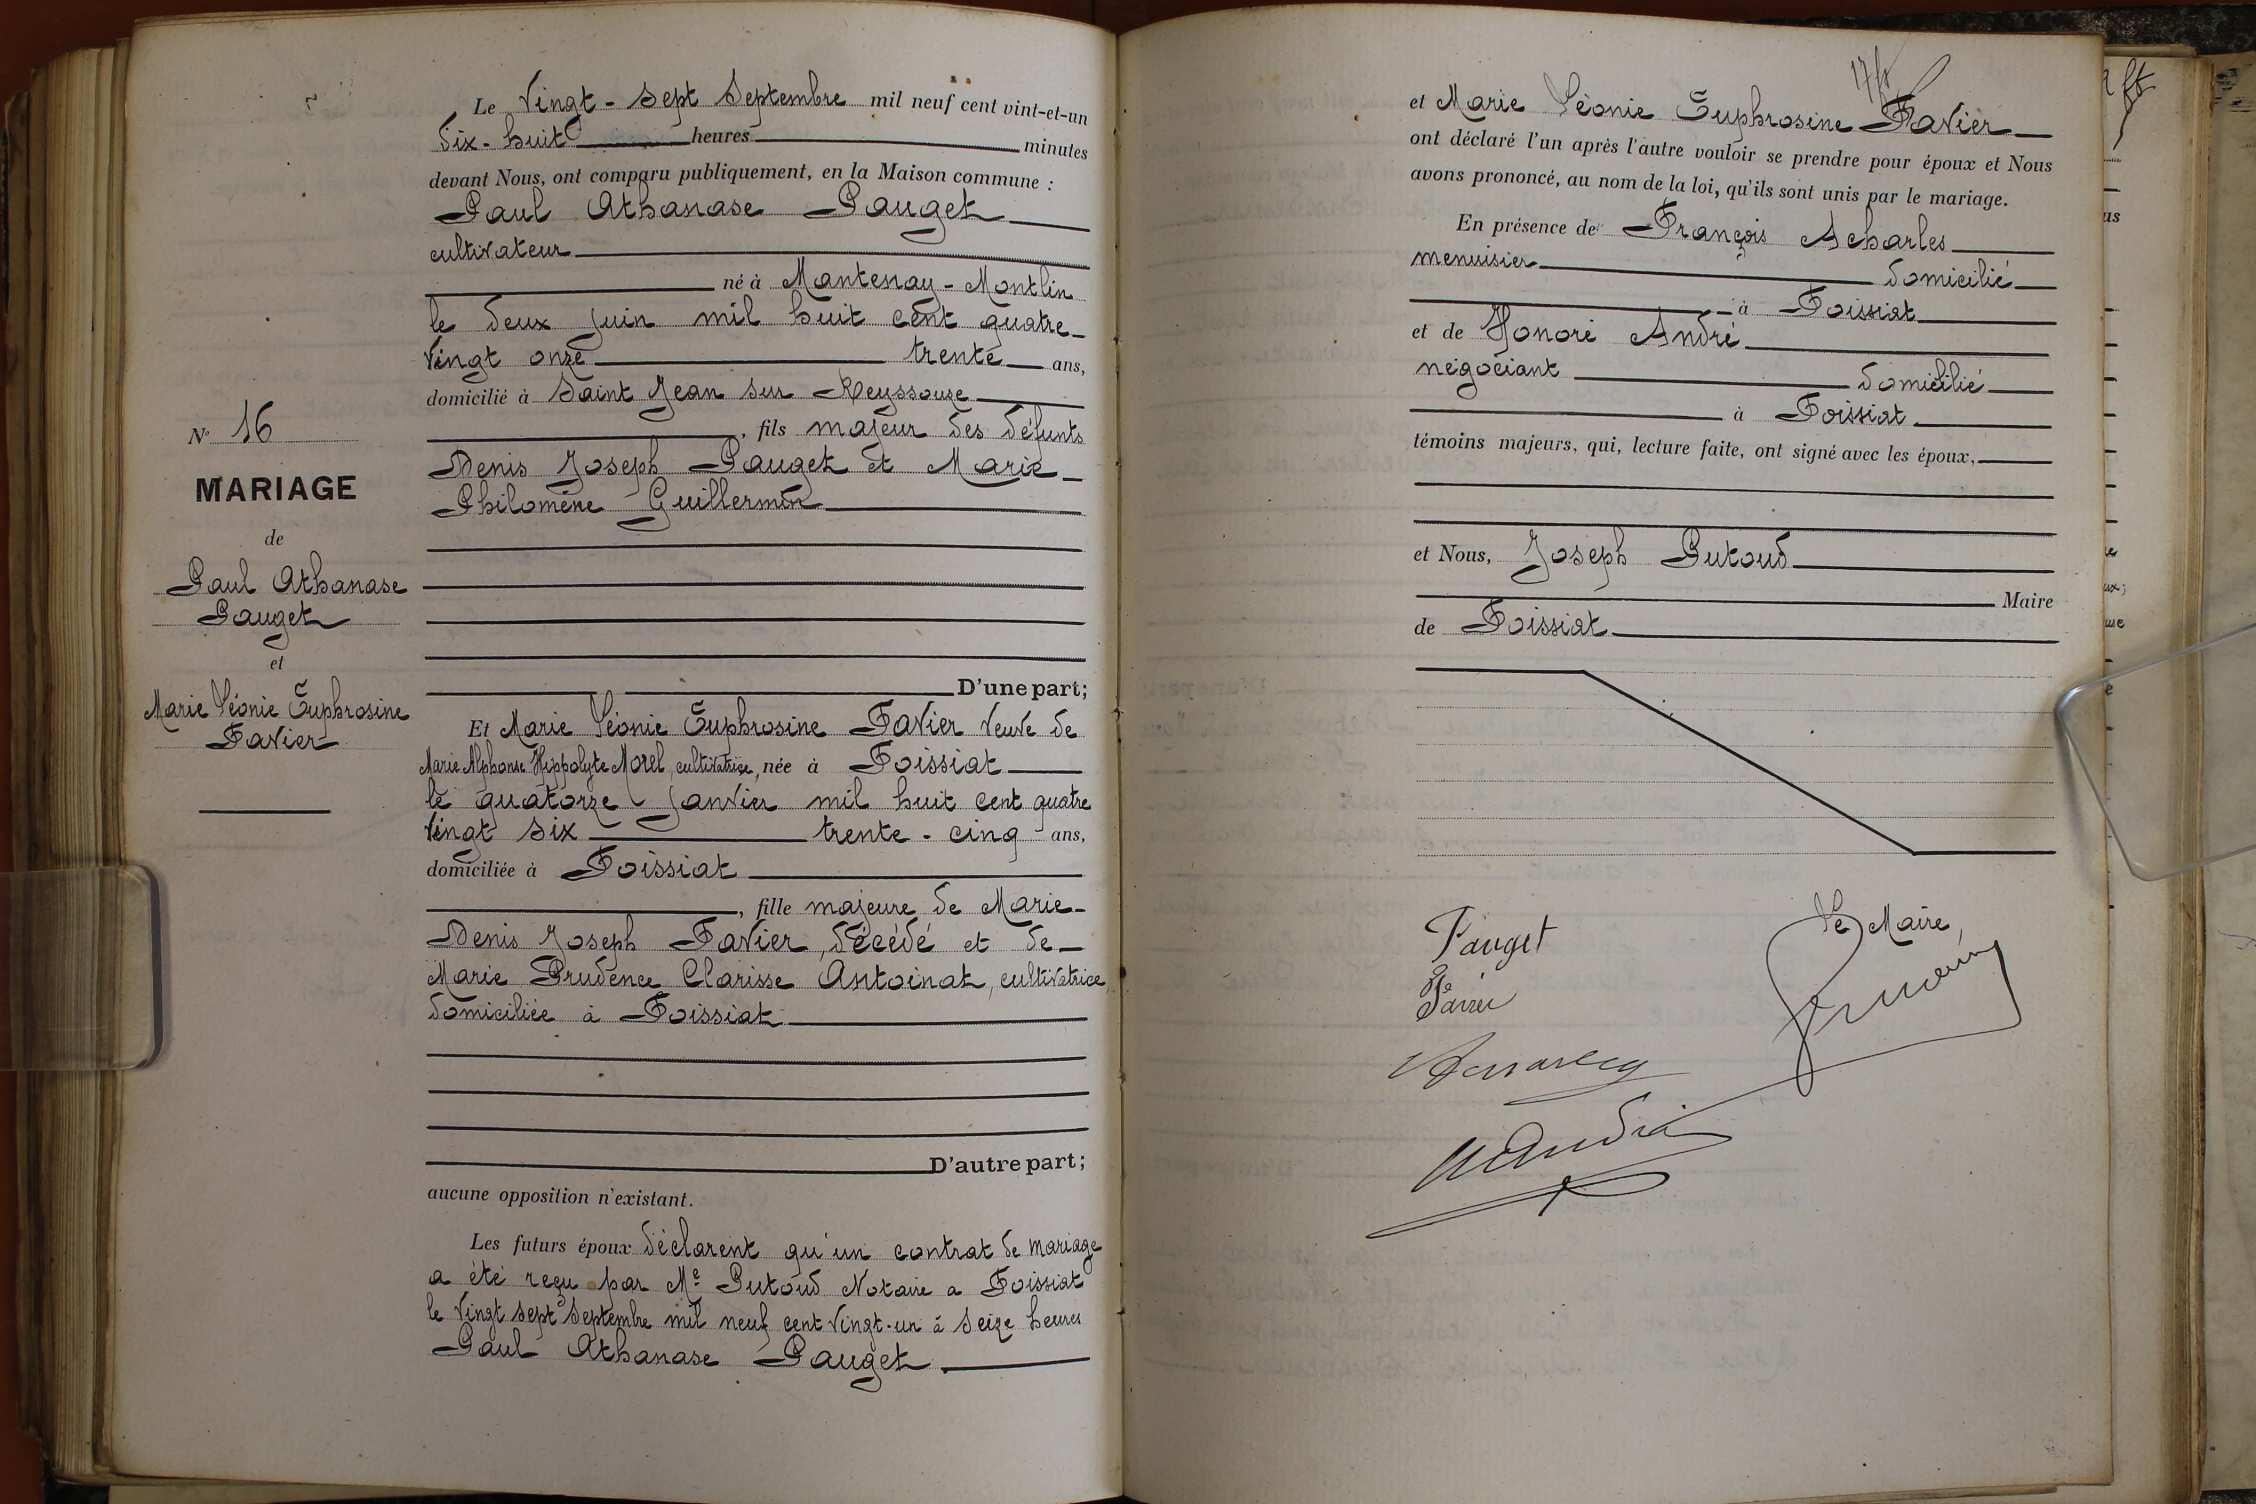 N° 16
MARIAGE
de
Paul Athanase
Pauget
et
Marie Léonie Euphrosine
Favier
Le Vingt-sept Septembre mil neuf cent vint-et-un
dix-huit heures minutes
devant Nous, ont comparu publiquement, en la Maison commune :
Paul Athanase Pauget
cultivateur
né à Mantenay-Montlin
le deux juin mil huit cent quatre-
vingt onze trente ans,
domicilié à Saint Jean sur Reyssouze
, fils majeur des défunts
Denis Joseph Pauget et Marie
Philomène Guillermin
D'une part;
Et Marie Léonie Euphrosine Favier veuve de
Marie Alphonse Hippolyte Morel, cultivatrice, née à Foissiat
le quatorze janvier mil huit cent quatre
vingt six trente-cinq ans,
domiciliée à Foissiat
, fille majeure de Marie-
Denis Joseph Favier, décédé et de
Marie Prudence Clarisse Antoinat, cultivatrice,
domiciliée à Foissiat
D'autre part;
aucune opposition n'existant.
Les futurs époux déclarent qu'un contrat de mariage
a été reçu par Me Putoud Notaire a Foissiat
le vingt sept septembre mil neuf cent vingt-un à seize heures
Paul Athanase Pauget
et Marie Léonie Euphrosine Favier
ont déclaré l'un après l'autre vouloir se prendre pour époux et Nous
avons prononcé, au nom de la loi, qu'ils sont unis par le mariage.
En présence de François Acharles
menuisier domicilié
à Foissiat
et de Honoré André
négociant domicilié
à Foissiat
témoins majeurs, qui, lecture faite, ont signé avec les époux,
et Nous, Joseph Putoud
Maire
de Foissiat
Le Maire,
Pauget
Favier